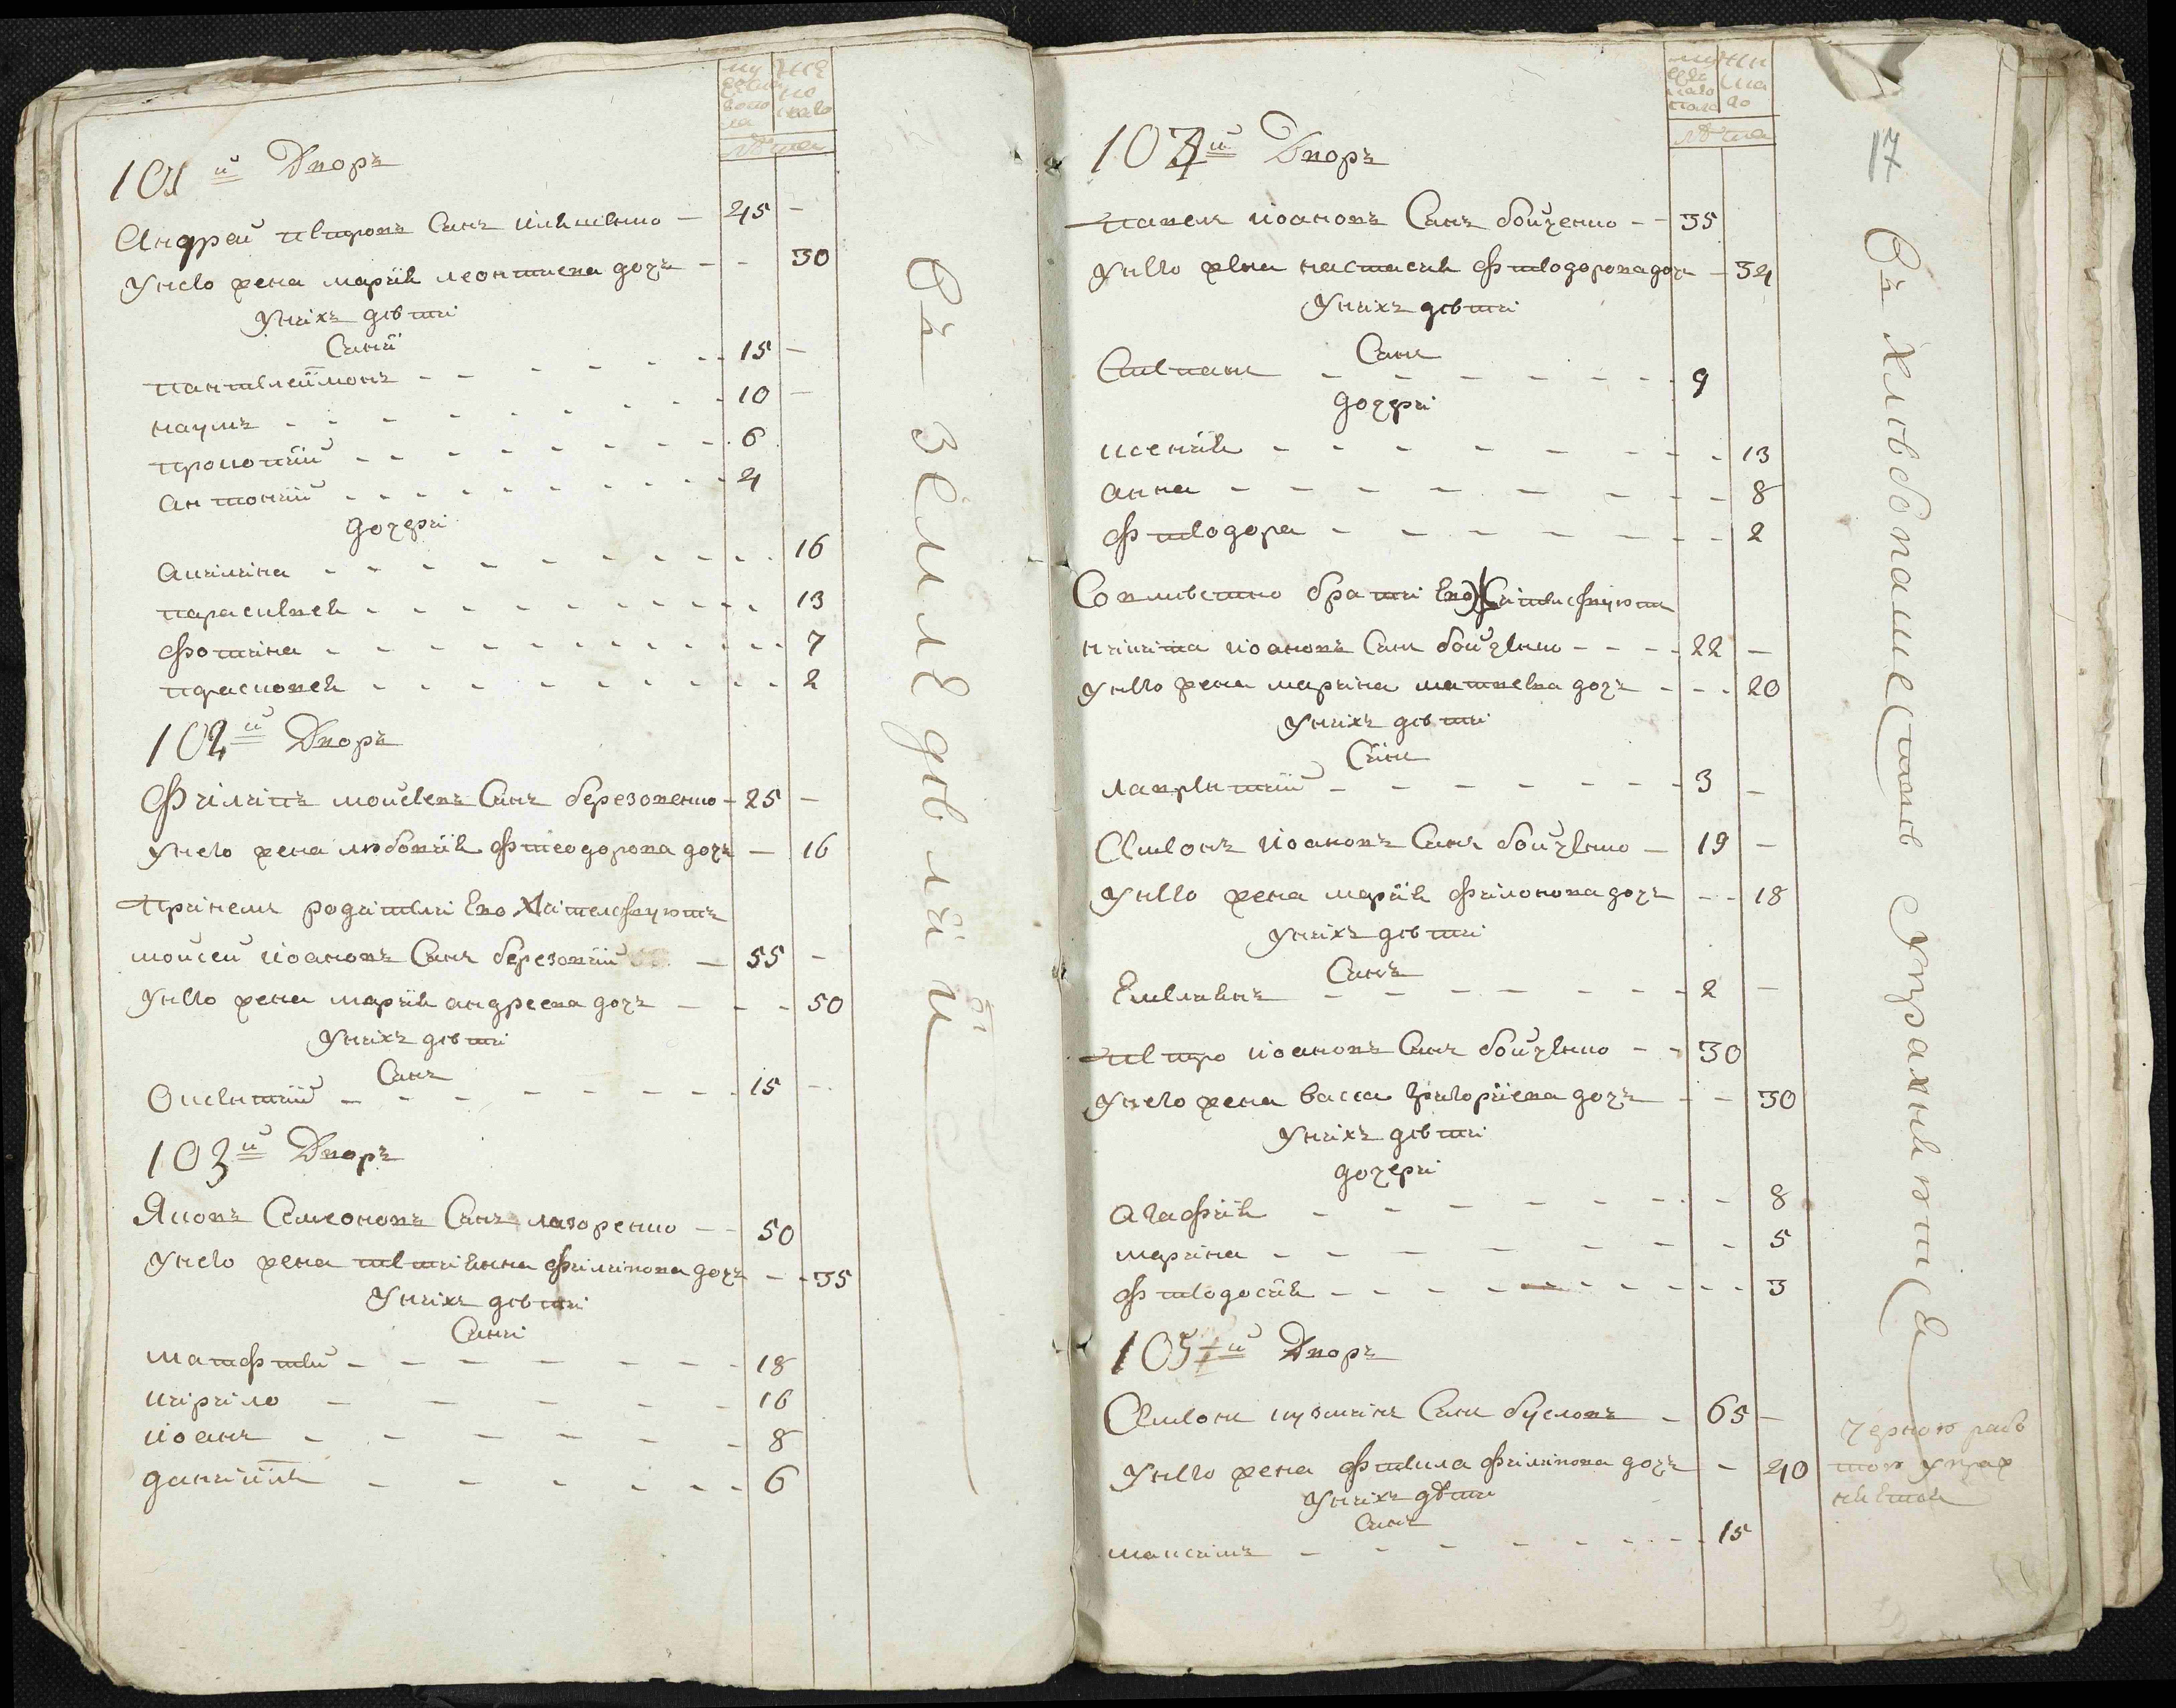 му жѐ
ско
лѣта
101й Дворъ
Андрей петровъ Синъ 45 -
Унего жена марія леонтиева дочъ - - 30
Унихъ дѣти
Сині
пантелеймонъ - - - - 15 -
наумъ - - - - 10 -
прокопій - - - - 6
антоній - - - - 4
дочері
акиліна - - - - 16
параскевея - - - - 13
фотіна - - - - 7
прасковея - - - - 2
102й Дворъ
Філіпъ моисеевъ Синъ березовенко - 25 -
Унего жена любовія фтеодорова дочъ - 16
Принемъ родители Его Жителствуютъ
мойсей иоановъ Синъ березовій - 55 -
Унего жена марія андреева дочъ - - - 50
Унихъ дѣти
Синъ
Оксентій - - - - 15 -
103й Дворъ
Яковъ Семеоновъ Синъ лазоренко - - 50
Унего жена тетиянна филипова дочъ - - 35
Унихъ дѣти
Сині
матфтей - - - - 18
киріло - - - - 16
иоанъ - - - - 8
даниилъ - - - - 6
въ земледѣліи
17
лѣта
104й Дворъ
павелъ иоановъ Синъ бойченко - - 35
Унего жена настасия фтеодорова дочъ - 34
Унихъ дѣти
Синъ
Степанъ - - - - 9
дочері
ксенія - - - - 13
анна - - - - 8
фтеодора - - - - 2
Совместно браті Его Жителствуютъ
никита иоановъ Синъ бойченко - - - - 22 -
Унего жена марина матвеева дочъ - - - 20
Унихъ дѣти
Синъ
лаврентій - - - - 3 -
Семеонъ иоановъ Синъ бойченко - 19 -
Унего жена марія філонова дочъ - - 18
Унихъ дѣти
Синъ
Емелиянъ - - - - 2 -
петро иоановъ Синъ бойченко - - 30
Унего жена васса григоріева дочъ - - 30
Унихъ дѣти
дочері
агафія - - - - 8
марина - - - - 5
фтеодосія - - - - 3
105й Дворъ
Семеонъ кузминъ Синъ бусловъ - 65 -
Унего жена фтекла филипова дочъ - 40
Унихъ дѣти
Синъ
максимъ - - - - 15
въ хлѣбопашестве упражняются
черною рабо
тою упраж
няется